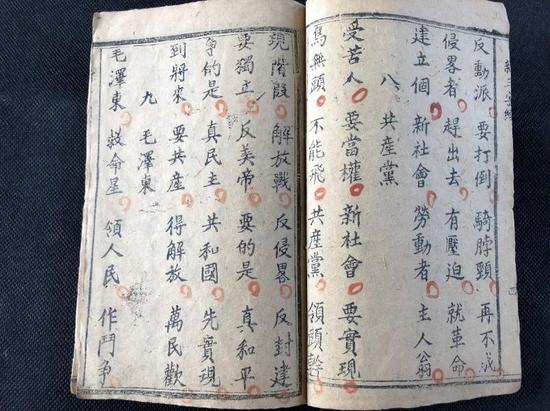 新三字經
反動派 要打倒 騎脖頸 再不成
侵畧者 趕出去 有壓迫 就革命
建立個 新社會 勞動者 主人翁
八 共產黨
受苦人 要當權 新社會 要實現
鳥無頭 不能飛 共產黨 領頭幹
現階段 解放戰 反侵畧 反封建
要獨立 反美帝 要的是 真和平
争的是 真民主 共和國 先實現
到將來 要共产 得解放 萬民歡
九 毛澤東
毛澤東 救命星 領人民 作鬥争